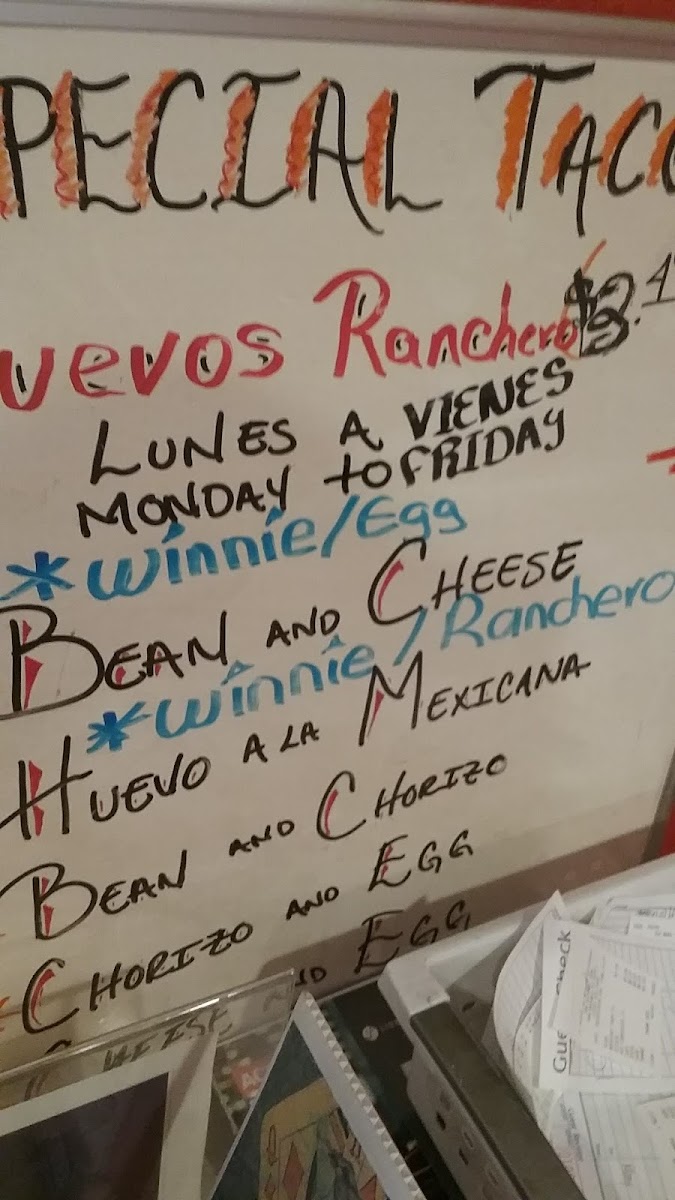 PECIAL TACO
uevos Ranchero $3.4
LUNES A VIENES
MONDAY to FRIDAY
*Winnie/Egg
BEAN AND CHEESE
*Winnie/Ranchero
HUEVO A LA MEXICANA
BEAN AND CHORIZO
CHORIZO AND EGG
CHEESE AND EGG
Guest Check